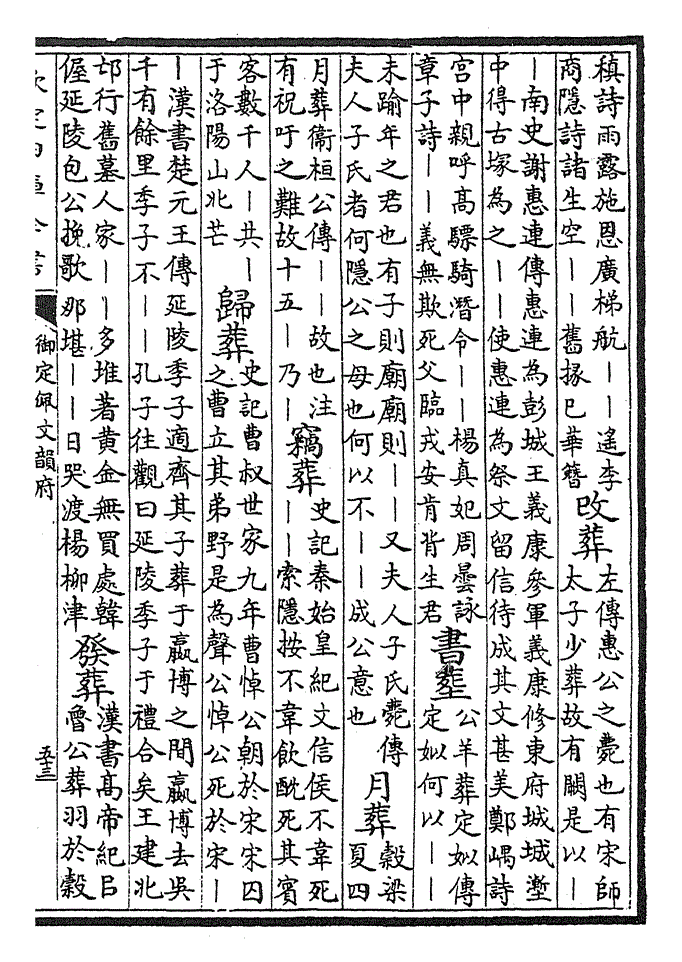 稹詩雨露施恩廣梯航｜｜遙李
商隱詩諸生空｜｜舊掾已華簪
改葬
左傳惠公之薨也有宋師
太子少葬故有闕是以｜
｜南史謝惠連傳惠連為彭城王義康參軍義康修東府城城塹
中得古塚為之｜｜使惠連為祭文留信待成其文甚美鄭嵎詩
宮中親呼高驃騎潛令｜｜楊真妃周曇詠
章子詩｜｜義無欺死父臨戎安肯背生君
書葬
公羊葬定姒傳
定姒何以｜｜
未踰年之君也有子則廟廟則｜｜又夫人子氏薨傳
夫人子氏者何隱公之母也何以不｜｜成公意也
月葬
穀梁
夏四
月葬衞桓公傳｜｜故也注
有祝吁之難故十五｜乃｜
竊葬
史記秦始皇紀文信侯不韋死
｜｜索隱按不韋飲酖死其賓
客數千人｜共｜
于洛陽山北芒
歸葬
史記曹叔世家九年曹悼公朝於宋宋囚
之曹立其弟野是為聲公悼公死於宋｜
｜漢書楚元王傳延陵季子適齊其子葬于嬴博之間嬴博去吳
千有餘里季子不｜｜孔子往觀曰延陵季子于禮合矣王建北
邙行舊墓人家｜｜多堆著黃金無買處韓
偓延陵包公挽歌那堪｜｜日哭渡楊柳津
發葬
漢書高帝紀㠯
魯公葬羽於穀
欽定四庫全書
御定佩文韻府
五十三